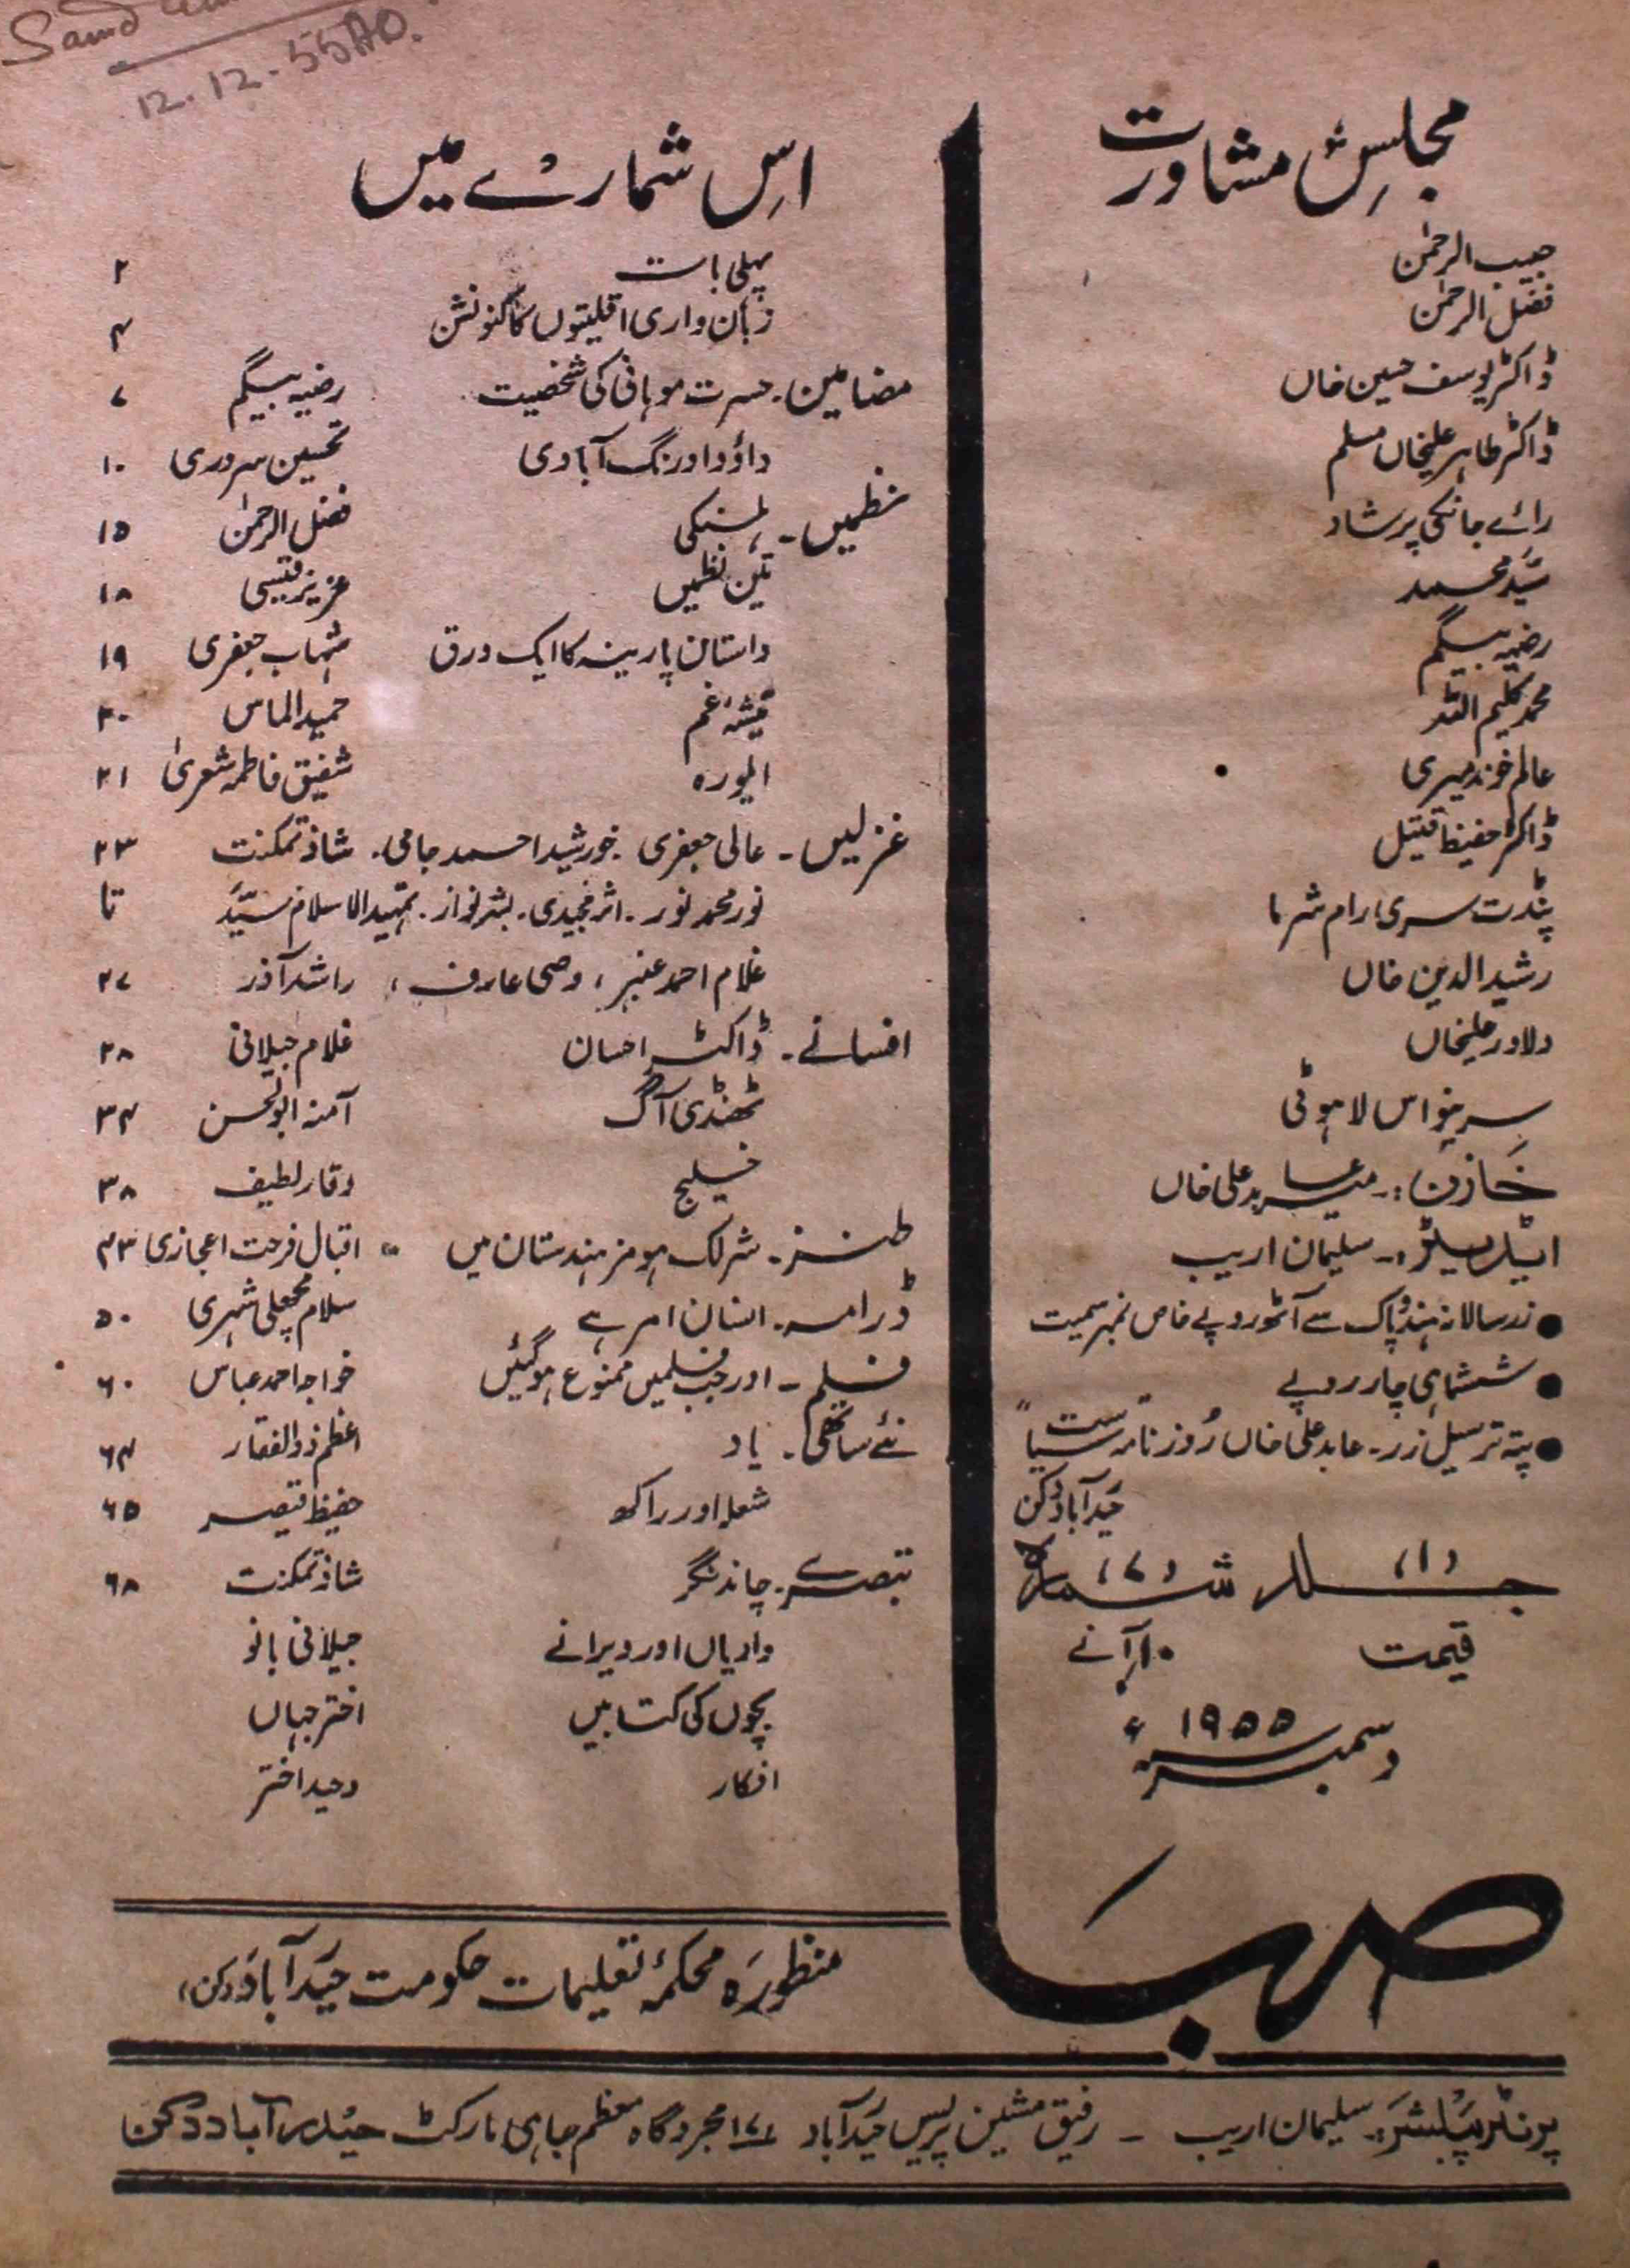 12.12.55
مجلسِ مشاورت
حبیب الرحمٰن
فضل الرحمٰن
ڈاکٹر یوسف حسین خاں
ڈاکٹر طاہر علیخاں مسلم
رائے جانکی پرشاد
سیّد محمد
رضیہ بیگم
محمد کلیم اللہ
عالم خوندمیری
ڈاکٹر حفیظ قتیل
پنڈت سری رام شرما
رشید الدین خاں
دلاور علیخاں
سرینواس لاہوٹی
خازن :۔ میر عابد علی خاں
ایڈیٹر :۔ سلیمان اریب
● زر سالانہ ہند و پاک سے آٹھ روپے خاص نمبر سمیت
● ششماہی چار روپے
● پتہ ترسیل زر ۔ عابد علی خاں روزنامہ "سیاست"
حیدرآباد دکن
جلد (۱) شمارہ (۷)
قیمت ۱۰؍ آنے
دسمبر ۱۹۵۵ء
صبا
اس شمارے میں
پہلی بات ۲
زبان واری اقلیتوں کا کنونشن ۴
مضامین ۔ حسرت موہانی کی شخصیت رضیہ بیگم ۷
داؤد اورنگ آبادی تحسین سروری ۱۰
نظمیں ۔ فضل الرحمٰن ۱۵
تین نظمیں عزیز قیسی ۱۸
داستان پارینہ کا ایک ورق شہاب جعفری ۱۹
تیشۂ غم حمید الماس ۲۰
ایلورہ شفیق فاطمہ شعریٰ ۲۱
غزلیں ۔ عالی جعفری ۔ خورشید احمد جامی ۔ شاذ تمکنت ۲۳
نور محمد نور ۔ اثر مجیدی ۔ بشر نواز ۔ تمہید الاسلام سیّد تا
غلام احمد عنبر ، وصی عارف ، راشد آذر ۲۷
افسانے ۔ ڈاکٹر احسان غلام جیلانی ۲۸
ٹھنڈی آگ آمنہ ابوالحسن ۳۴
خلیج وقار لطیف ۳۸
طنز ۔ شرلک ہومز ہندستان میں اقبال فرحت اعجازی ۴۳
ڈرامہ ۔ انسان امر ہے سلام مچھلی شہری ۵۰
فلم ۔ اور جب فلمیں ممنوع ہوگئیں خواجہ احمد عباس ۶۰
نئے ساتھی ۔ یاد اعظم ذوالفقار ۶۴
شعلہ اور راکھ حفیظ قیصر ۶۵
تبصرے ۔ چاند نگر شاذ تمکنت ۶۸
وادیاں اور ویرانے جیلانی بانو
بچوں کی کتابیں اختر جہاں
افکار وحید اختر
منظورہ محکمۂ تعلیمات حکومت حیدرآباد (دکن)
پرنٹر پبلشر :۔ سلیمان اریب ۔ رفیق مشین پریس حیدرآباد ۱۷ مجردگاہ معظم جاہی مارکٹ حیدرآباد دکن